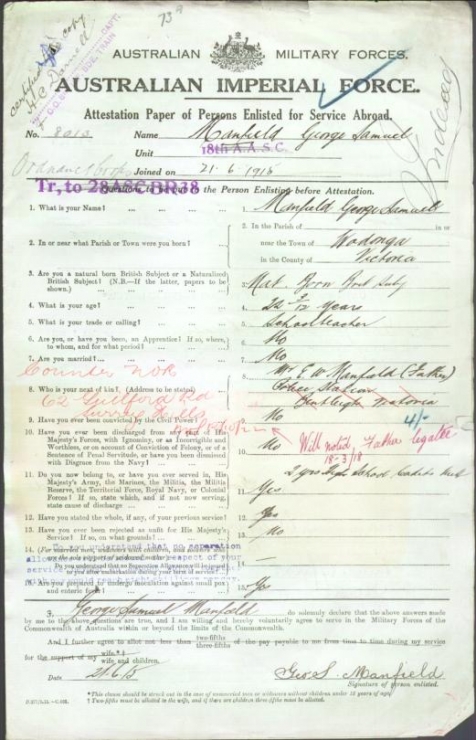 73
certified true copy
AUSTRALIAN MILITARY FORCES.
AUSTRALIAN IMPERIAL FORCE.
Attestation Paper of Persons Enlisted for Service Abroad.
No. Name Manfield George Samuel
Unit 18th A.A.S.C.
Joined on 21.6.1915
Tr, to 28 ASC BR 38
Questions to be put to the Person Enlisting before Attestation.
1. What is your Name? 1. Manfield George Samuel
2. In or near what Parish or Town were you born? 2. In the Parish of in or
near the Town of Wodonga
in the County of Victoria
3. Are you a natural born British Subject or a Naturalized
British Subject? (N.B.—If the latter, papers to be
shown.) 3. Nat. Born Brit Subj
4. What is your age? 4. 22 years
5. What is your trade or calling? 5. Schoolteacher
6. Are you, or have you been, an Apprentice? If so, where,
to whom, and for what period? 6. No
7. Are you married? 7. No
8. Who is your next of kin? (Address to be stated) 8. Mr. G. W. Manfield (Father)
Police Station
Bentleigh Victoria
62 Guilford Rd
Surrey Hills
9. Have you ever been convicted by the Civil Power? 9. No
4/-
10. Have you ever been discharged from any part of His
Majesty's Forces, with Ignominy, or as Incorrigible and
Worthless, or on account of Conviction of Felony, or of a
Sentence of Penal Servitude, or have you been dismissed
with Disgrace from the Navy? 10. No
Will noted Father legatee
18-3-18
11. Do you now belong to, or have you ever served in, His
Majesty's Army, the Marines, the Militia, the Militia
Reserve, the Territorial Force, Royal Navy, or Colonial
Forces? If so, state which, and if not now serving,
state cause of discharge 11. Yes
12. Have you stated the whole, if any, of your previous service? 12. Yes
13. Have you ever been rejected as unfit for His Majesty's
Service? If so, on what grounds? 13. No
14. (For married men, widowers with children, and soldiers who
are the sole support of widowed mother)—
Do you understand that no Separation Allowance will be issued
to you after embarkation during your term of service? 14. —
15. Are you prepared to undergo inoculation against small pox
and enteric fever? 15. Yes
I, George Samuel Manfield do solemnly declare that the above answers made
by me to the above questions are true, and I am willing and hereby voluntarily agree to serve in the Military Forces of the
Commonwealth of Australia within or beyond the limits of the Commonwealth.
And I further agree to allot not less than two-fifths three-fifths of the pay payable to me from time to time during my service
for the support of my wife.*†
wife and children.
Date 21/6/15 Geo. S. Manfield
Signature of person enlisted.
* This clause should be struck out in the case of unmarried men or widowers without children under 18 years of age.
† Two-fifths must be allotted to the wife, and if there are children three-fifths must be allotted.